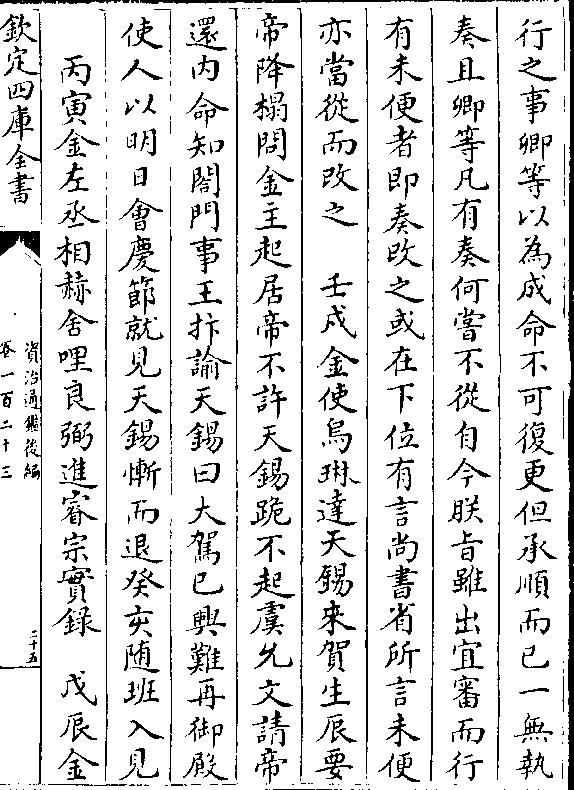 行之事卿等以為成命不可復更但承順而已一無執
奏且卿等凡有奏何嘗不從自今朕旨雖出宜審而行
有未便者即奏改之或在下位有言尚書省所言未便
亦當從而改之　壬戌金使烏琳達天錫來賀生辰要
帝降榻問金主起居帝不許天錫跪不起虞允文請帝
還内命知閤門事王抃諭天錫曰大駕已興難再御殿
使人以明日會慶節就見天錫慚而退癸亥随班入見
丙寅金左丞相赫舍哩良弼進睿宗實錄　戊辰金
欽定四庫全書
資治通鑑後編
卷一百二十三
二十五